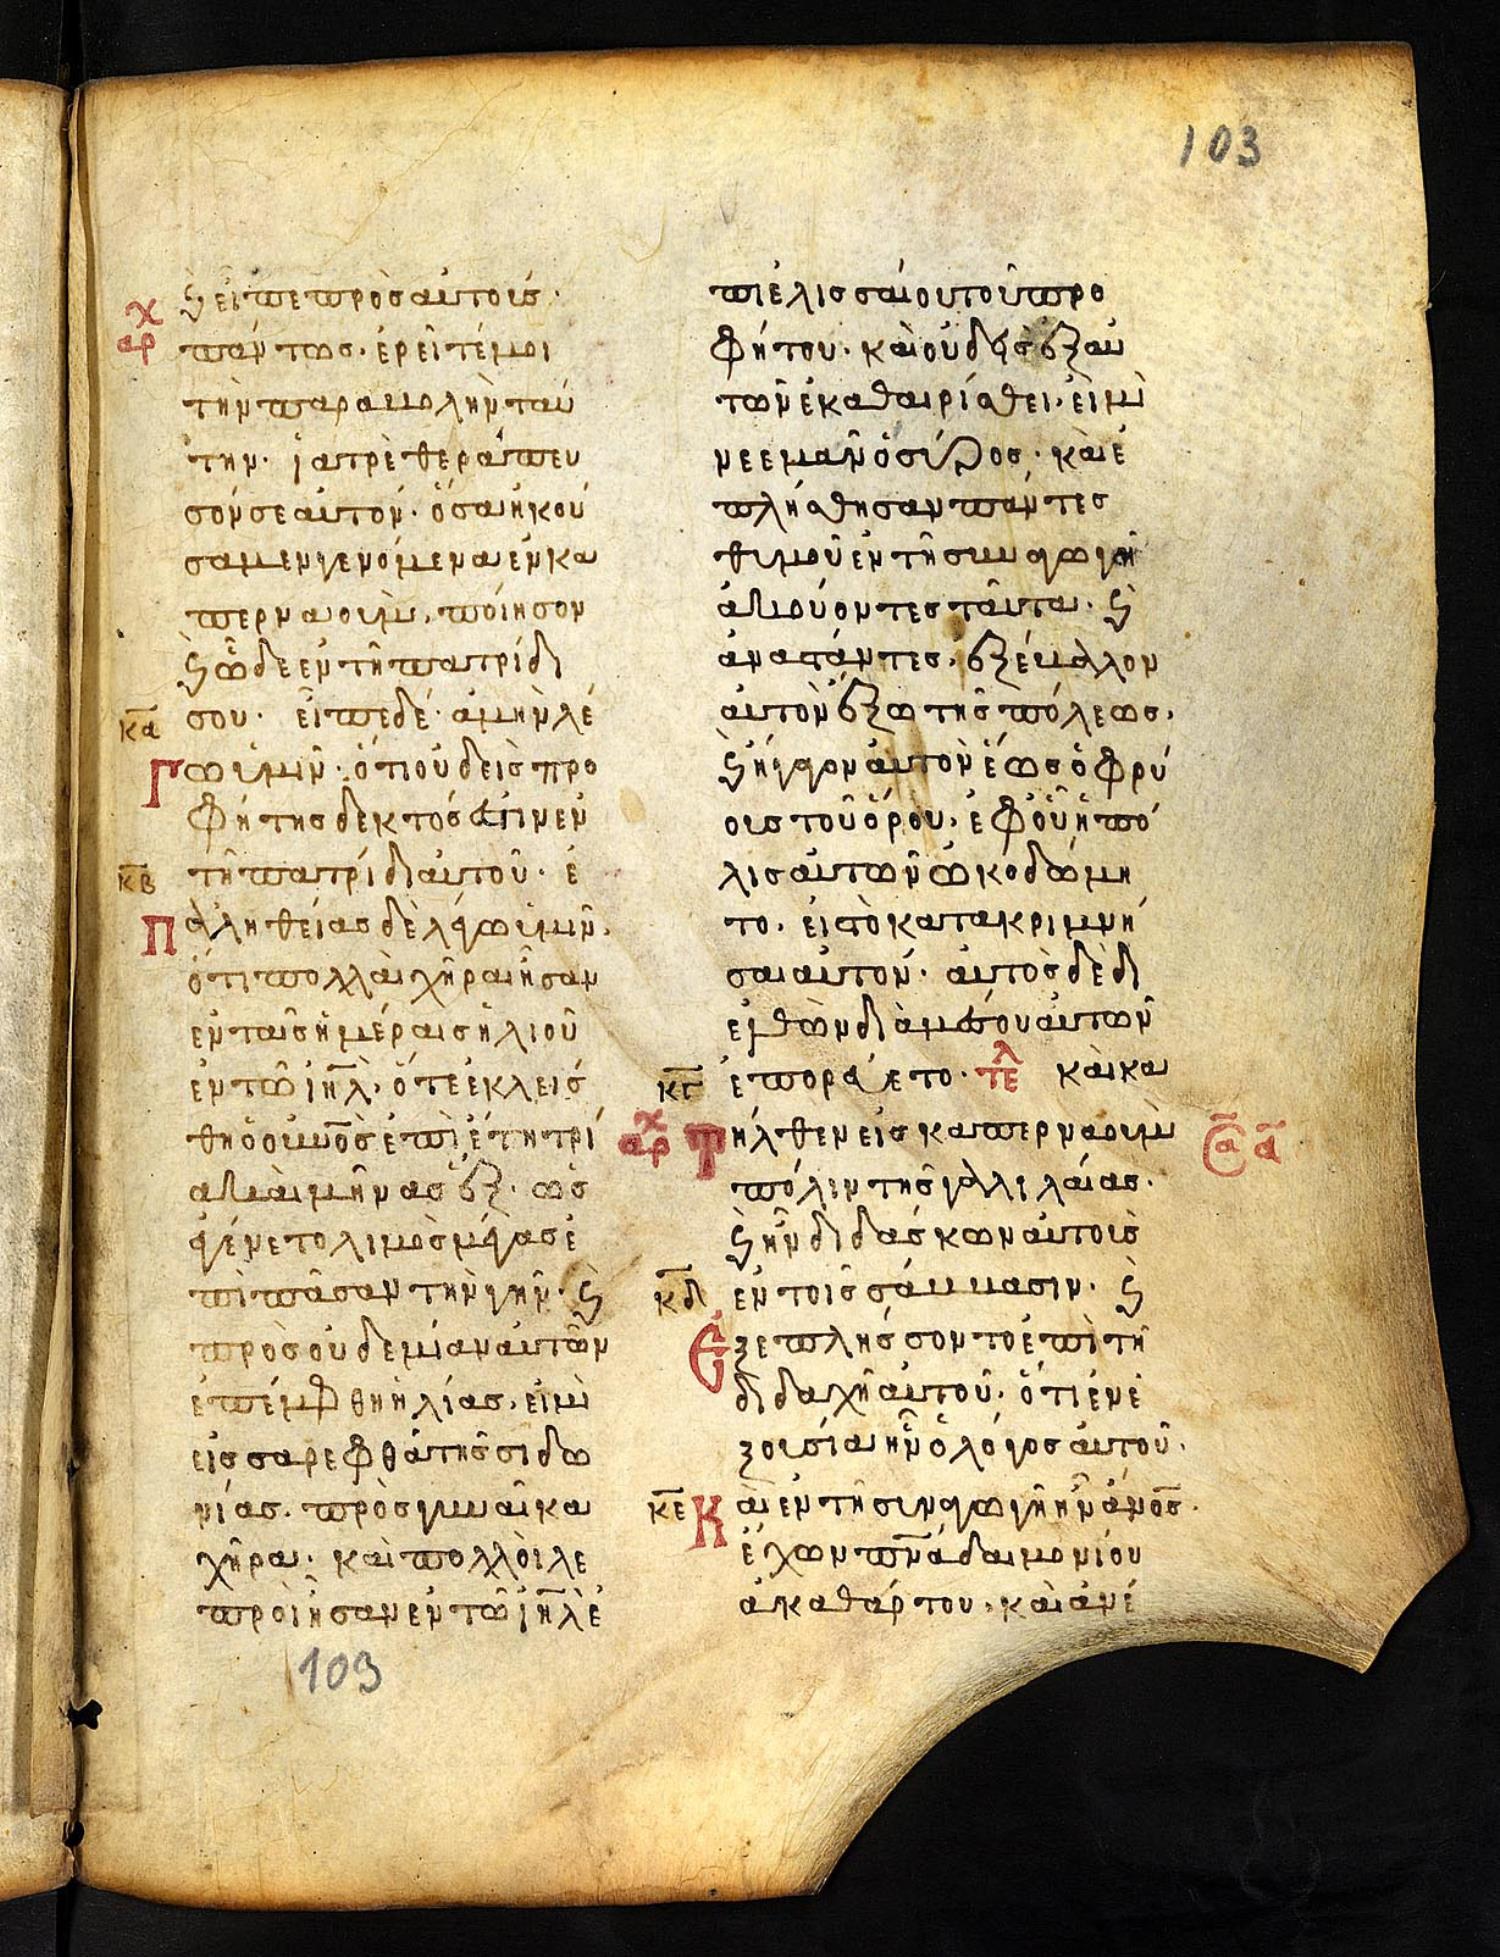 103
ϗ εἶπε πρὸσ αὐτοισ·
χ
αρ
πάντωσ· ἐρεῖτέ μοι
τὴν παραβολὴν ταύ
την· ἰατρὲ θεράπευ
σόν σε αυτόν· ὅσα ἠκού
σαμεν γενόμενα ἐν κα
περναουὺμ, ποίησον
ϗ ὧδε ἐν τῆ πατρίδι
κα
σου· εἶπε δέ· ἀμὴν λέ
Γω ὑμῖν· ὅτι οὐδεὶσ προ
φήτησ δεκτόσ ἐστιν ἐν
κβ
τῆ πατρίδι αυτοῦ· ἐ
Π ἀληθείασ δὲ λέγω ὑμῖν,
ὅτι πολλαὶ χῆραι ἦσαν
ἐν ταῖσ ἡμέραισ ἡλιοῦ
ἐν τῶ ἰηλ̅, ὅτε ἐκλεισ
θη ὁ οὐνοσ̅ ἐπὶ ἔτη τρί
α καὶ μῆνασ ἕξ· ὡσ
ἐγένετο λιμὸσ μέγασ ἐ
πὶ πᾶσαν τὴν γῆν· ϗ
πρὸσ οὐδεμίαν αυτῶν
ἐπέμφθη ἠλίασ, εἰ μὴ
εἰσ σαρεφθὰ τῆσ σιδω
νίασ. πρὸσ γυναῖκα
χῆρα· καὶ πολλοὶ λε
προὶ ἦσαν ἐν τῶ ἰηλ̅ ἐ
πὶ ἐλισσαίου τοῦ προ
φήτου· καὶ οὐδεὶσ ἐξ αυ
τῶν ἐκαθαιρίσθει· εἰ μὴ
νεεμαν ὁ σύροσ· καὶ ἐ
πλήσθησαν πάντεσ
θυμοῦ ἐν τῆ συναγωγῆ
ἀκούοντεσ ταῦτα· ϗ
ἀναστάντεσ, ἐξέβαλον
αὐτὸν ἔξω τῆσ πόλεωσ,
ϗ ἤγαγον αὐτὸν ἕωσ ὀφρύ
οισ τοῦ ὄρου, ἐφ οὗ ἡ πό
λισ αὐτῶν ὠκοδώμη
το. εἰσ τὸ κατακριμνή
σαι αυτόν· αὐτὸσ δὲ δι
ελθὼν διὰ μέσου αὐτῶν
κγ
ἐπορεύετο· τελ καὶ κα
χ
αρ
Τῆλθεν εἰσ καπερναουὺμ
σα α
πόλιν τῆσ γαλλιλαίασ.
ϗ ἦν διδάσκων αὐτοισ
κδ
ἐν τοῖσ σάββασιν· ϗ
Ἐξεπλήσσοντο ἐπὶ τῆ
διδαχῆ αὐτοῦ· ὅτι ἐν ἐ
ξουσία ἦν ὁ λόγοσ αὐτοῦ.
κε
Καὶ ἐν τῆ συναγωγῆ ἦν ἀνοσ̅·
ἔχων πνα̅ δαιμονίου
ἀκαθάρτου, καὶ ἀνέ
103